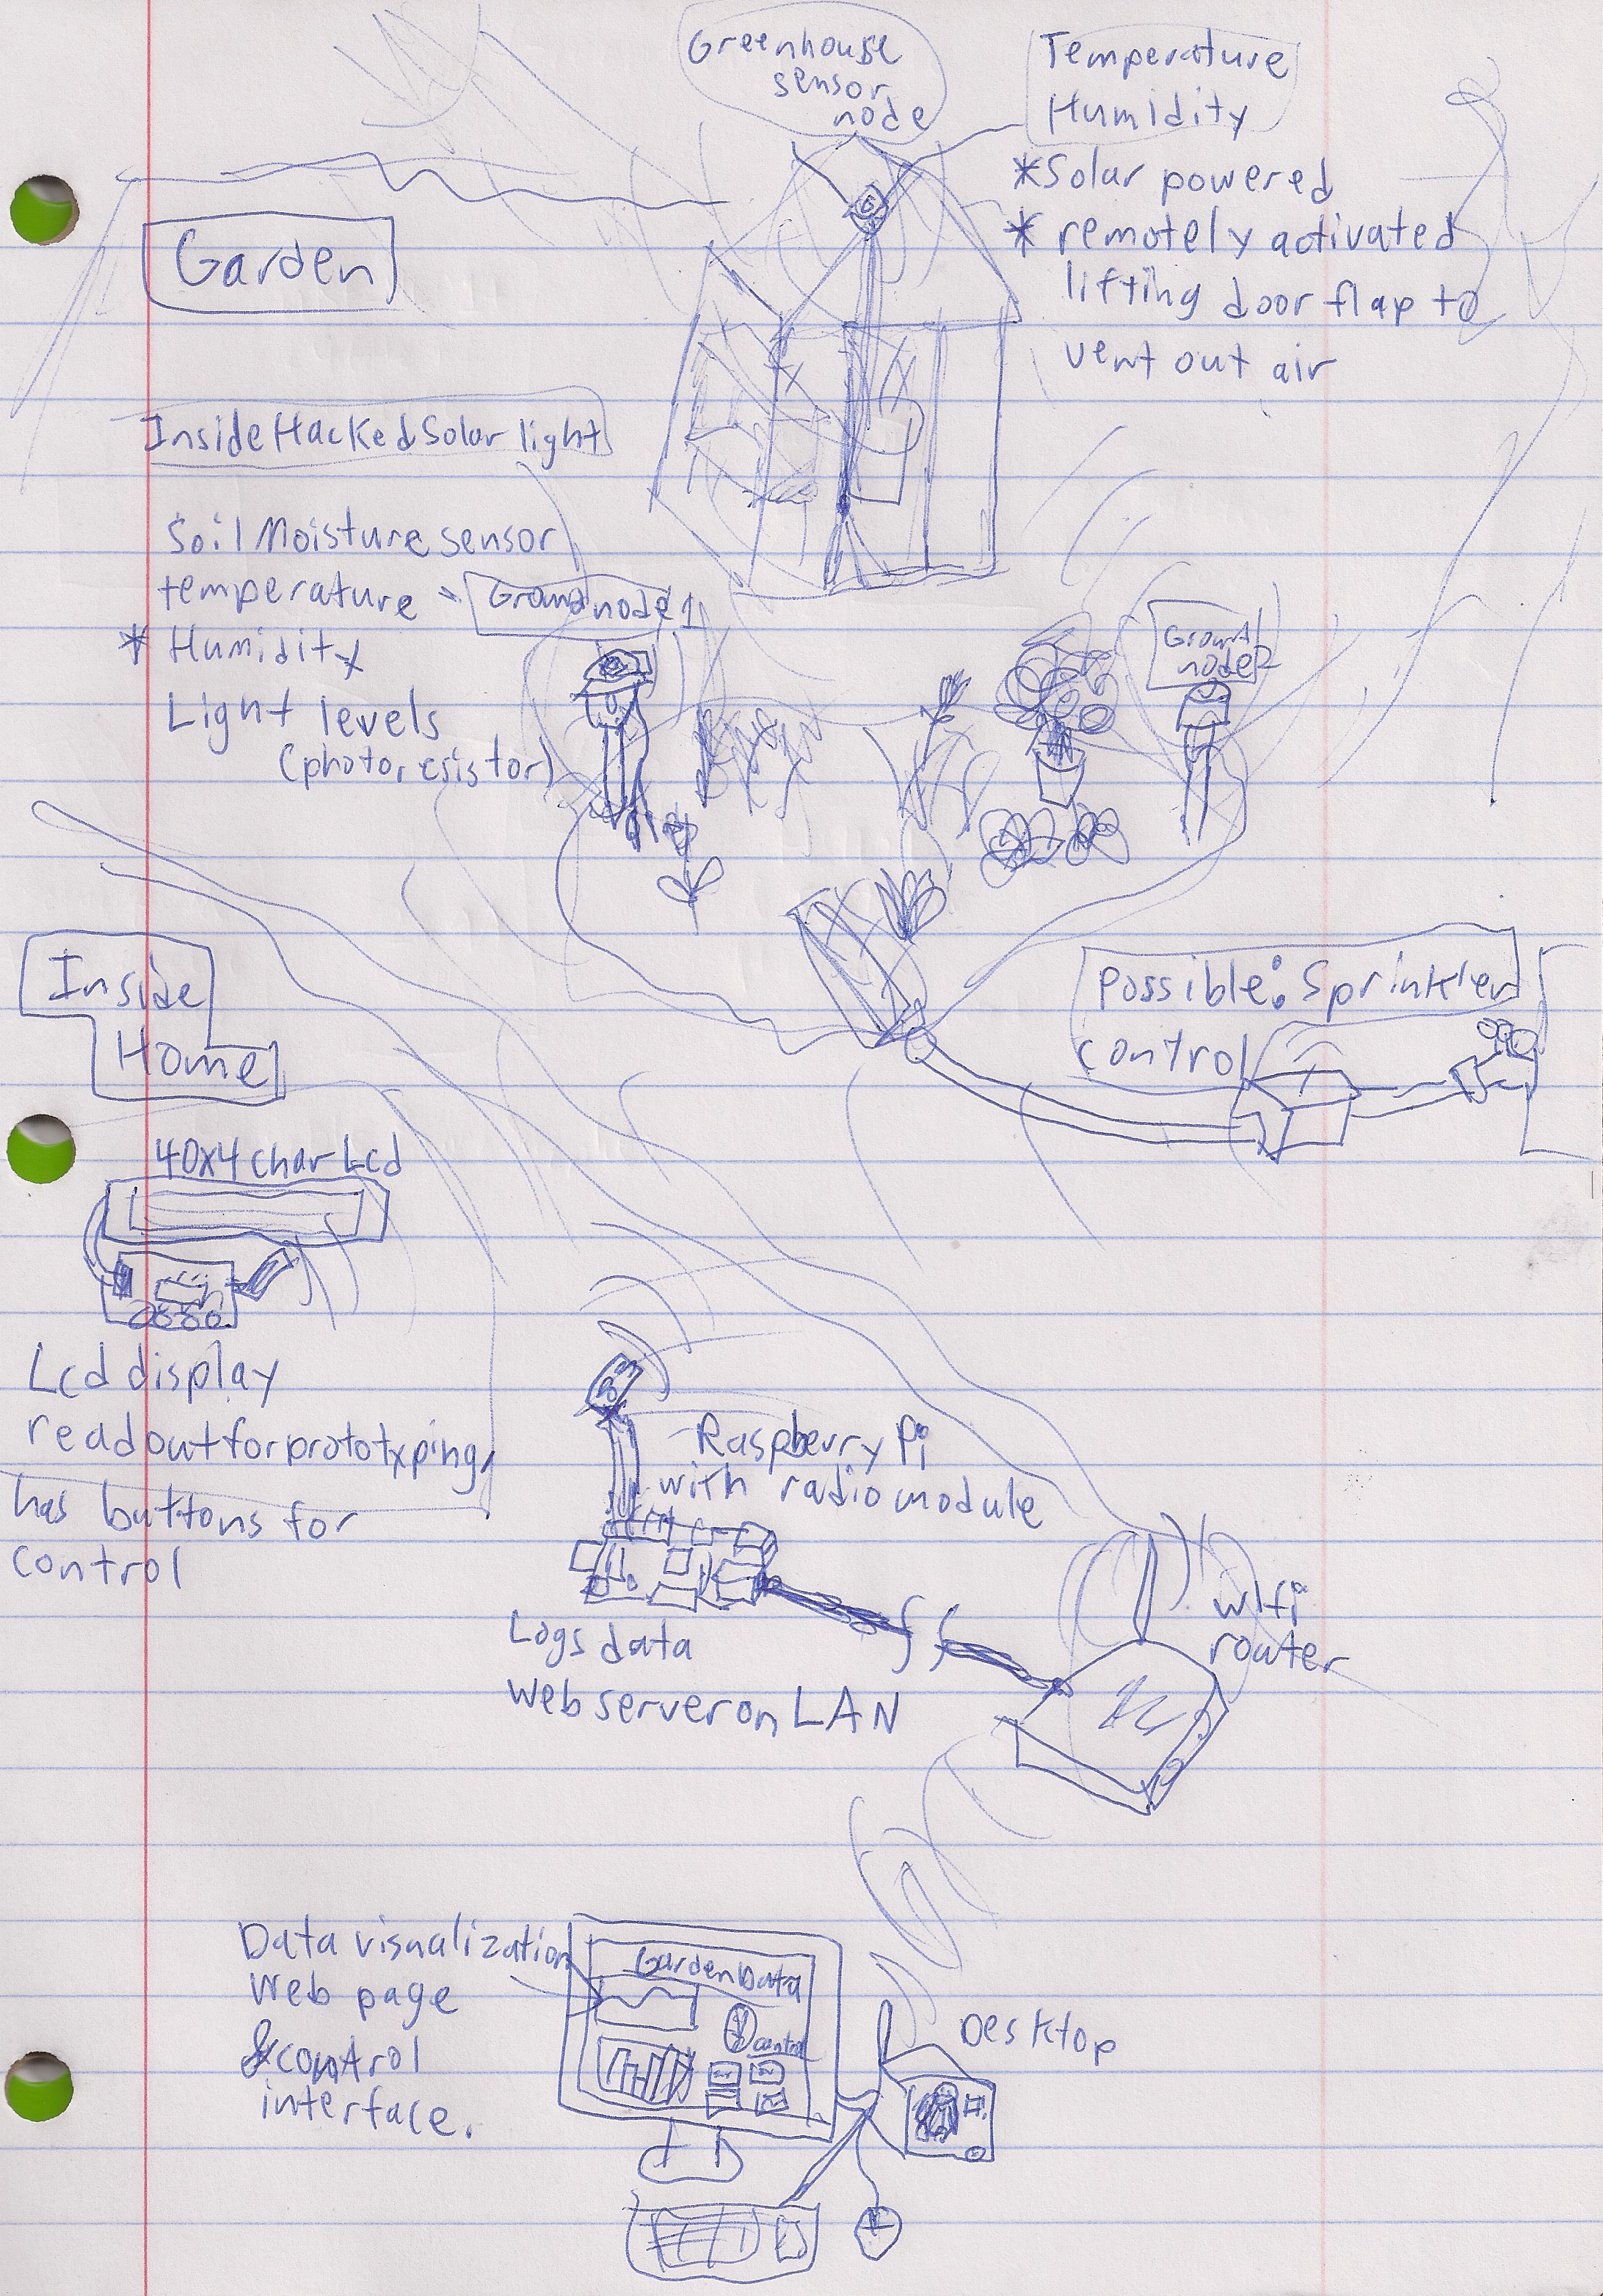 Greenhouse
sensor
node
Temperature
Humidity
*Solar powered
* remotely activated
lifting door flap to
vent out air
Garden
Inside Hacked Solar light
Soil Moisture sensor
temperature
* Humidity
Light levels
(photoresistor)
Ground node 1
Ground
node 2
Possible: Sprinkler
control
Inside
Home
40x4 char Lcd
Lcd display
readout for prototyping,
has buttons for
control
Raspberry Pi
with radio module
Logs data
Web server on LAN
wifi
router
Data visualization
Web page
& control
interface.
Garden Data
control
Desktop